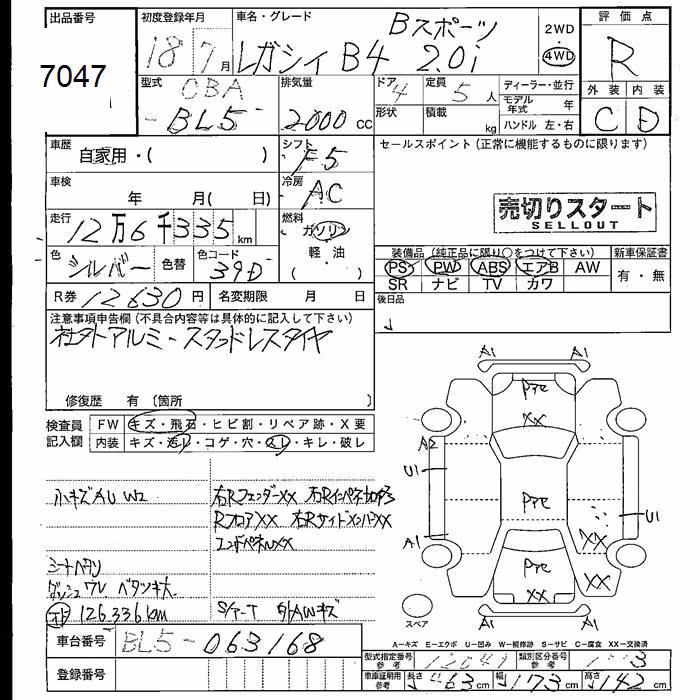 出品番号
7047
初度登録年月
18 7月
車名・グレード
Bスポーツ
レガシィ B4 2.0i
2WD
・
4WD
評価点
R
外装 内装
C D
型式
CBA
-BL5-
排気量
2000 cc
ドア
4
形状
定員
5 人
積載
kg
ディーラー・並行
モデル年式 年
ハンドル 左・右
車歴
自家用・( )
シフト
F5
セールスポイント (正常に機能するものに限ります)
車検
年 月( 日)
冷房
AC
売切りスタート
SELLOUT
走行
12万6千335 km
燃料
ガソリン
軽・油
( )
色
シルバー
色替
色コード
39D
装備品 (純正品に限り○をつけて下さい)
PS PW ABS エアB AW
SR ナビ TV カワ
新車保証書
有・無
R券 12630円
名変期限 月 日
後日品
注意事項申告欄 (不具合内容等は具体的に記入して下さい)
社外アルミ-スタッドレスタイヤ
修復歴 有 (箇所 )
検査員
記入欄
FW キズ・飛石・ヒビ割・リペア跡・X要
内装 キズ・汚レ・コゲ・穴・スレ・キレ・破レ
小キズAU W2
右RフェンダーXX 右Rインパネ
RフロアXX 右RサイドメンバーXX
エンドパネルXX
シートヘタリ
ダッシュウレ ベタツキ大
126.336km
外AWキズ
A1
A1
Pre
XX
A2
U1
Pre
U1
A1
XX
Pre
XX
XX
A1
A1
スペア
車台番号 BL5-063168
登録番号
A-キズ E-エクボ U-凹み W-補修跡 S-サビ C-腐食 XX-交換済
型式指定番号
参考
類別区分番号
参考
車庫証明用
参考
長さ 463cm
幅 173cm
高さ 142cm